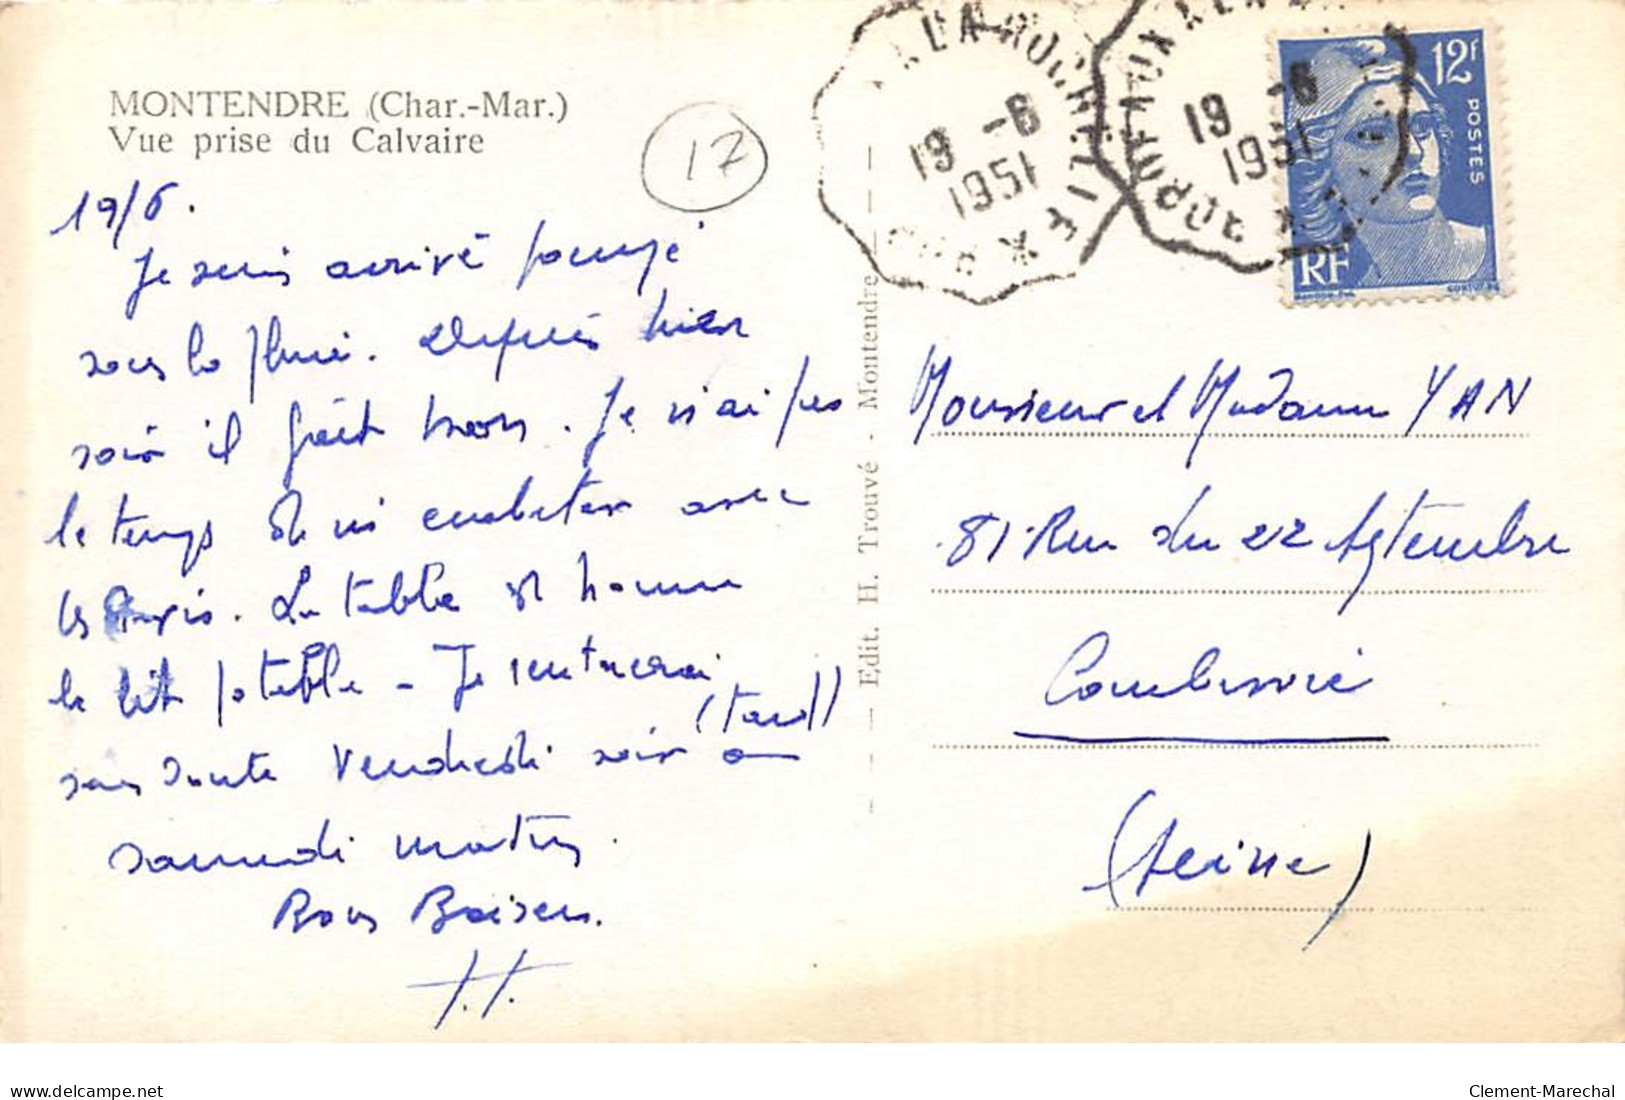 MONTENDRE (Char.-Mar.)
Vue prise du Calvaire
17
19/6.
Je suis arrivé
sous la pluie. Depuis hier
soir il fait bon. Je n'ai pas
le temps de m'embêter avec
les. La table est bonne
le lit potable - Je rentrerai
sans doute vendredi soir (tard) ou
samedi matin.
Bons Baisers.
Edit. H. Trouvé - Montendre
A LA ROCHELLE
19 -6
1951
BORDEAUX A LA
19 -6
1951
12F
POSTES
RF
Monsieur et Madame YAN
81 Rue du 22 Septembre
Courbevoie
(Seine)
delcampe.net
Clement-Marechal